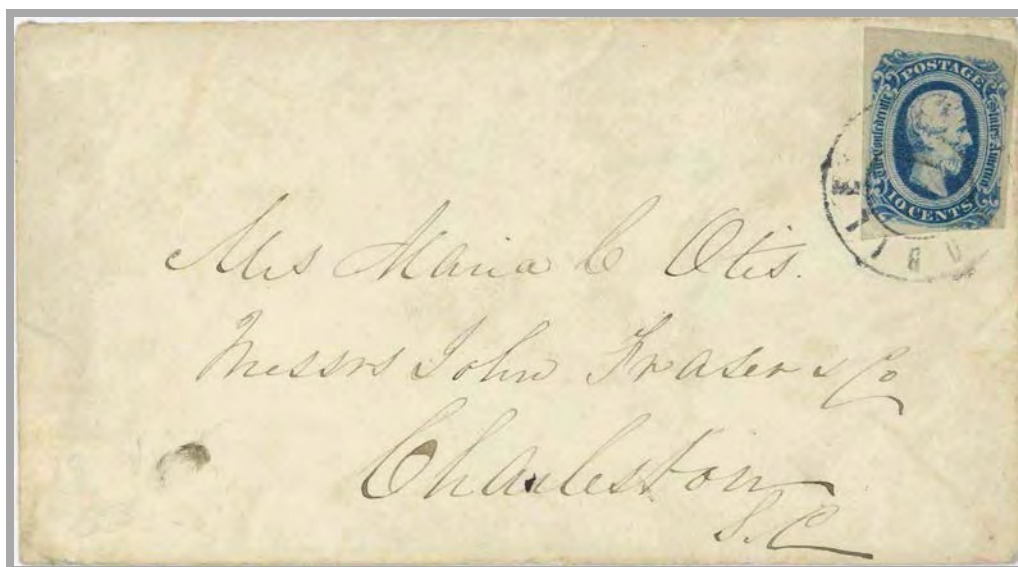 POSTAGE
The Confederate States of America
10 CENTS
Mrs Maria C Otis.
Messrs John Fraser & Co
Charleston
S.C